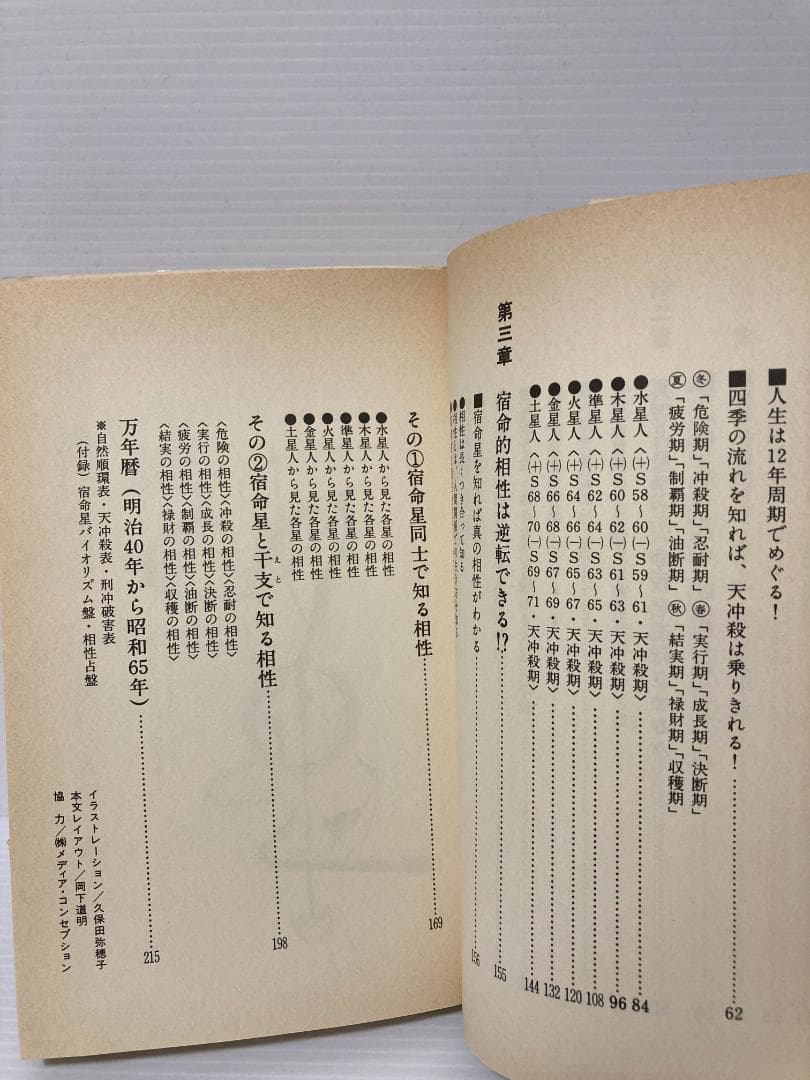 ■人生は12年周期でめぐる！
■四季の流れを知れば、天冲殺は乗りきれる！……62
㊡「危険期」「冲殺期」「忍耐期」㊡「実行期」「成長期」「決断期」
「疲労期」「制覇期」「油断期」「結実期」「禄財期」「収穫期」
●水星人〈㈩S58〜60㈠S59〜61・天冲殺期〉……84
●木星人〈㈩S60〜62㈠S61〜63・天冲殺期〉……96
●準星人〈㈩S62〜64㈠S63〜65・天冲殺期〉……108
●火星人〈㈩S64〜66㈠S65〜67・天冲殺期〉……120
●金星人〈㈩S66〜68㈠S67〜69・天冲殺期〉……132
●土星人〈㈩S68〜70㈠S69〜71・天冲殺期〉……144
第三章　宿命的相性は逆転できる!?……155
■宿命星を知れば真の相性がわかる……156
●相性は長くつき合って知る
その①宿命星同士で知る相性……169
●水星人から見た各星の相性
●木星人から見た各星の相性
●準星人から見た各星の相性
●火星人から見た各星の相性
●金星人から見た各星の相性
●土星人から見た各星の相性
その②宿命星と干支で知る相性……198
えと
〈危険の相性〉〈冲殺の相性〉〈忍耐の相性〉
〈実行の相性〉〈成長の相性〉〈決断の相性〉
〈疲労の相性〉〈制覇の相性〉〈油断の相性〉
〈結実の相性〉〈禄財の相性〉〈収穫の相性〉
万年暦（明治40年から昭和65年）……215
※自然順環表・天冲殺表・刑冲破害表
（付録）宿命星バイオリズム盤・相性占盤
イラストレーション／久保田弥穂子
本文レイアウト／岡下道明
協力／㈱メディア・コンセプション